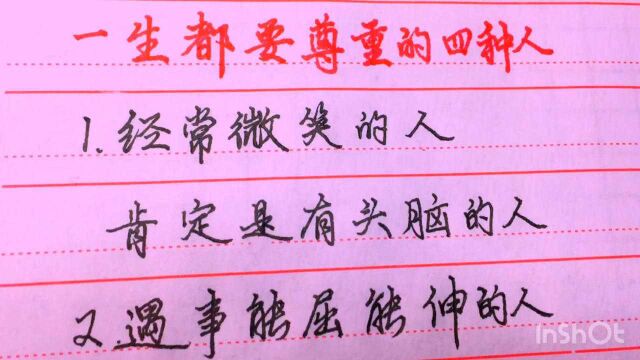 一生都要尊重的四种人
1.经常微笑的人
肯定是有头脑的人
2.遇事能屈能伸的人
InShOt